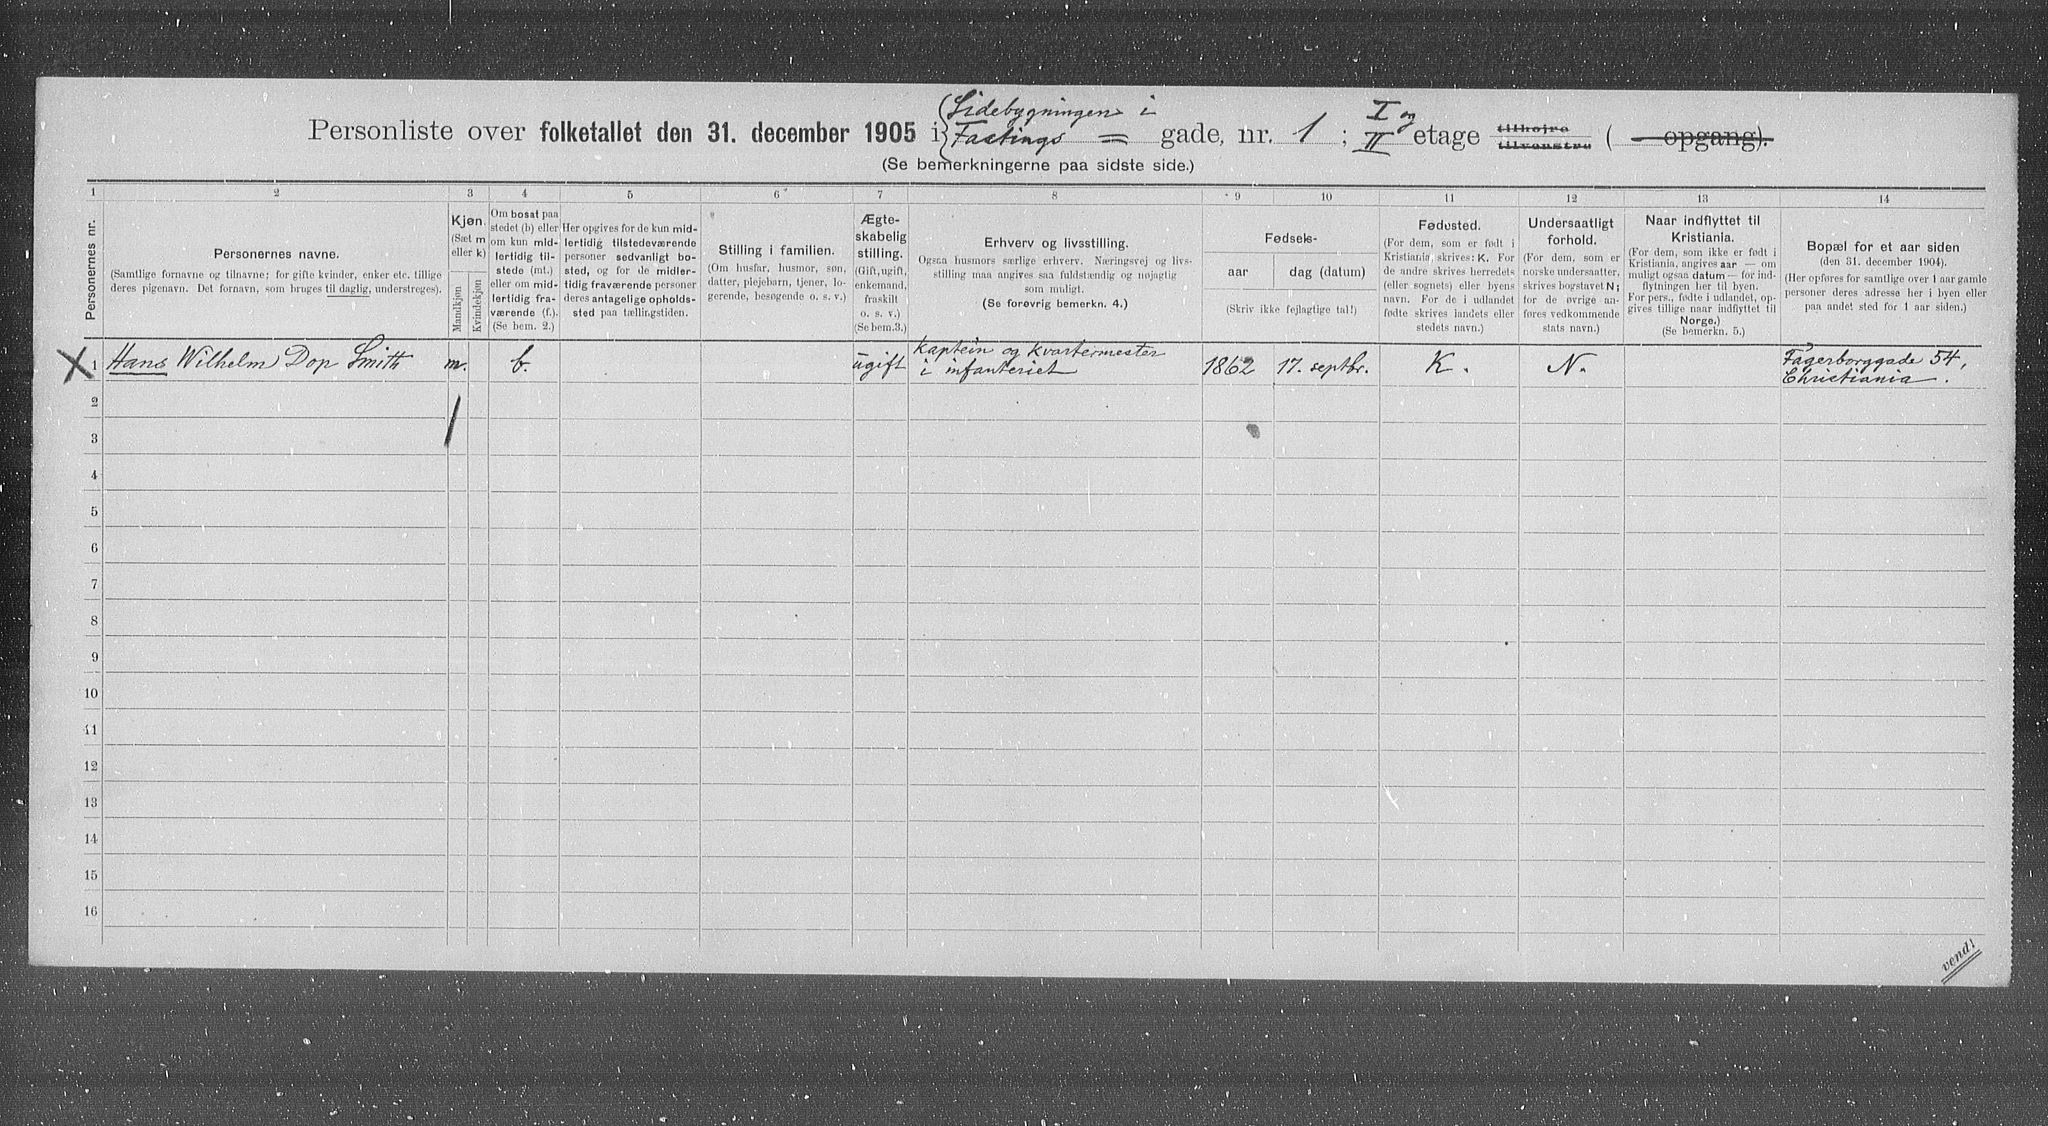 Personliste over folketallet den 31. december 1905 i { Sidebygningen i Fastings = gade, nr. 1 ; I og II etage tilhøjre tilvenstre ( — opgang).
(Se bemerkningerne paa sidste side.)
1 2 3 4 5 6 7 8 9 10 11 12 13 14
Personernes nr.
Personernes navne.
(Samtlige fornavne og tilnavne; for gifte kvinder, enker etc. tillige
deres pigenavn. Det fornavn, som bruges til daglig, understreges).
Kjøn.
(Sæt m
eller k)
Mandkjøn
Kvindekjøn
Om bosat paa
stedet (b) eller
om kun mid-
lertidig til-
stede (mt.)
eller om mid-
lertidig fra-
værende (f.).
(Se bem. 2.)
Her opgives for de kun mid-
lertidig tilstedeværende
personer sedvanligt bo-
sted, og for de midler-
tidig fraværende personer
deres antagelige opholds-
sted paa tællingstiden.
Stilling i familien.
(Om husfar, husmor, søn,
datter, plejebarn, tjener, lo-
gerende, besøgende o. s. v.)
Ægte-
skabelig
stilling.
(Gift, ugift,
enkemand,
fraskilt
o. s. v.)
(Se bem.3.)
Erhverv og livsstilling.
Ogsaa husmors særlige erhverv. Næringsvej og livs-
stilling maa angives saa fuldstændig og nøjagtig
som muligt.
(Se forøvrig bemerkn. 4.)
Fødsels-
aar
dag (datum)
(Skriv ikke fejlagtige tal!)
Fødested.
(For dem, som er født i
Kristiania, skrives: K. For
de andre skrives herredets
(eller sognets) eller byens
navn. For de i udlandet
fødte skrives landets eller
stedets navn.)
Undersaatligt
forhold.
(For dem, som er
norske undersaatter,
skrives bogstavet N;
for de øvrige an-
føres vedkommende
stats navn.)
Naar indflyttet til
Kristiania.
(For dem, som ikke er født i
Kristiania, angives aar — om
muligt ogsaa datum — for ind-
flytningen her til byen.
For pers., fødte i udlandet, op-
gives tillige naar indflyttet til
Norge.)
(Se bemerkn. 5.)
Bopæl for et aar siden
(den 31. december 1904).
(Her opføres for samtlige over 1 aar gamle
personer deres adresse her i byen eller
paa andet sted for 1 aar siden.)
X 1 Hans Wilhelm Dop Smith m. b. ugift kaptein og kvartermester i infanteriet 1862 17. septbr. K. N. Fagerborggade 54, Christiania.
2
3
4
5
6
7
8
9
10
11
12
13
14
15
16
vend!